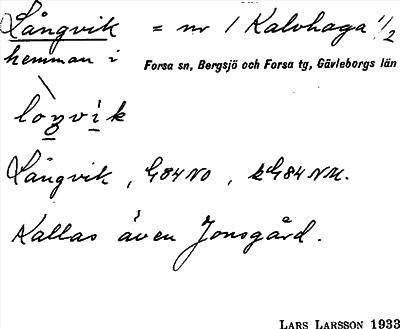 Långvik = nr 1 Kalvhaga 1/2
hemman i Forsa sn, Bergsjö och Forsa tg, Gävleborgs län
loŋvik
Långvik, G84NO, kG84NM.
Kallas även Jonsgård.
LARS LARSSON 1933